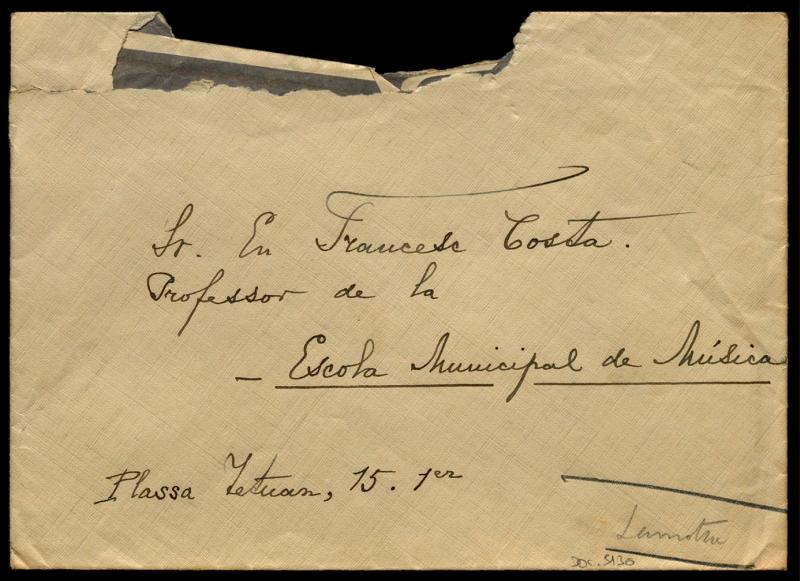 Sr. En Francesc Costa.
Professor de la
- Escola Municipal de Música
Plassa Tetuan, 15. 1er
DOC. 5130